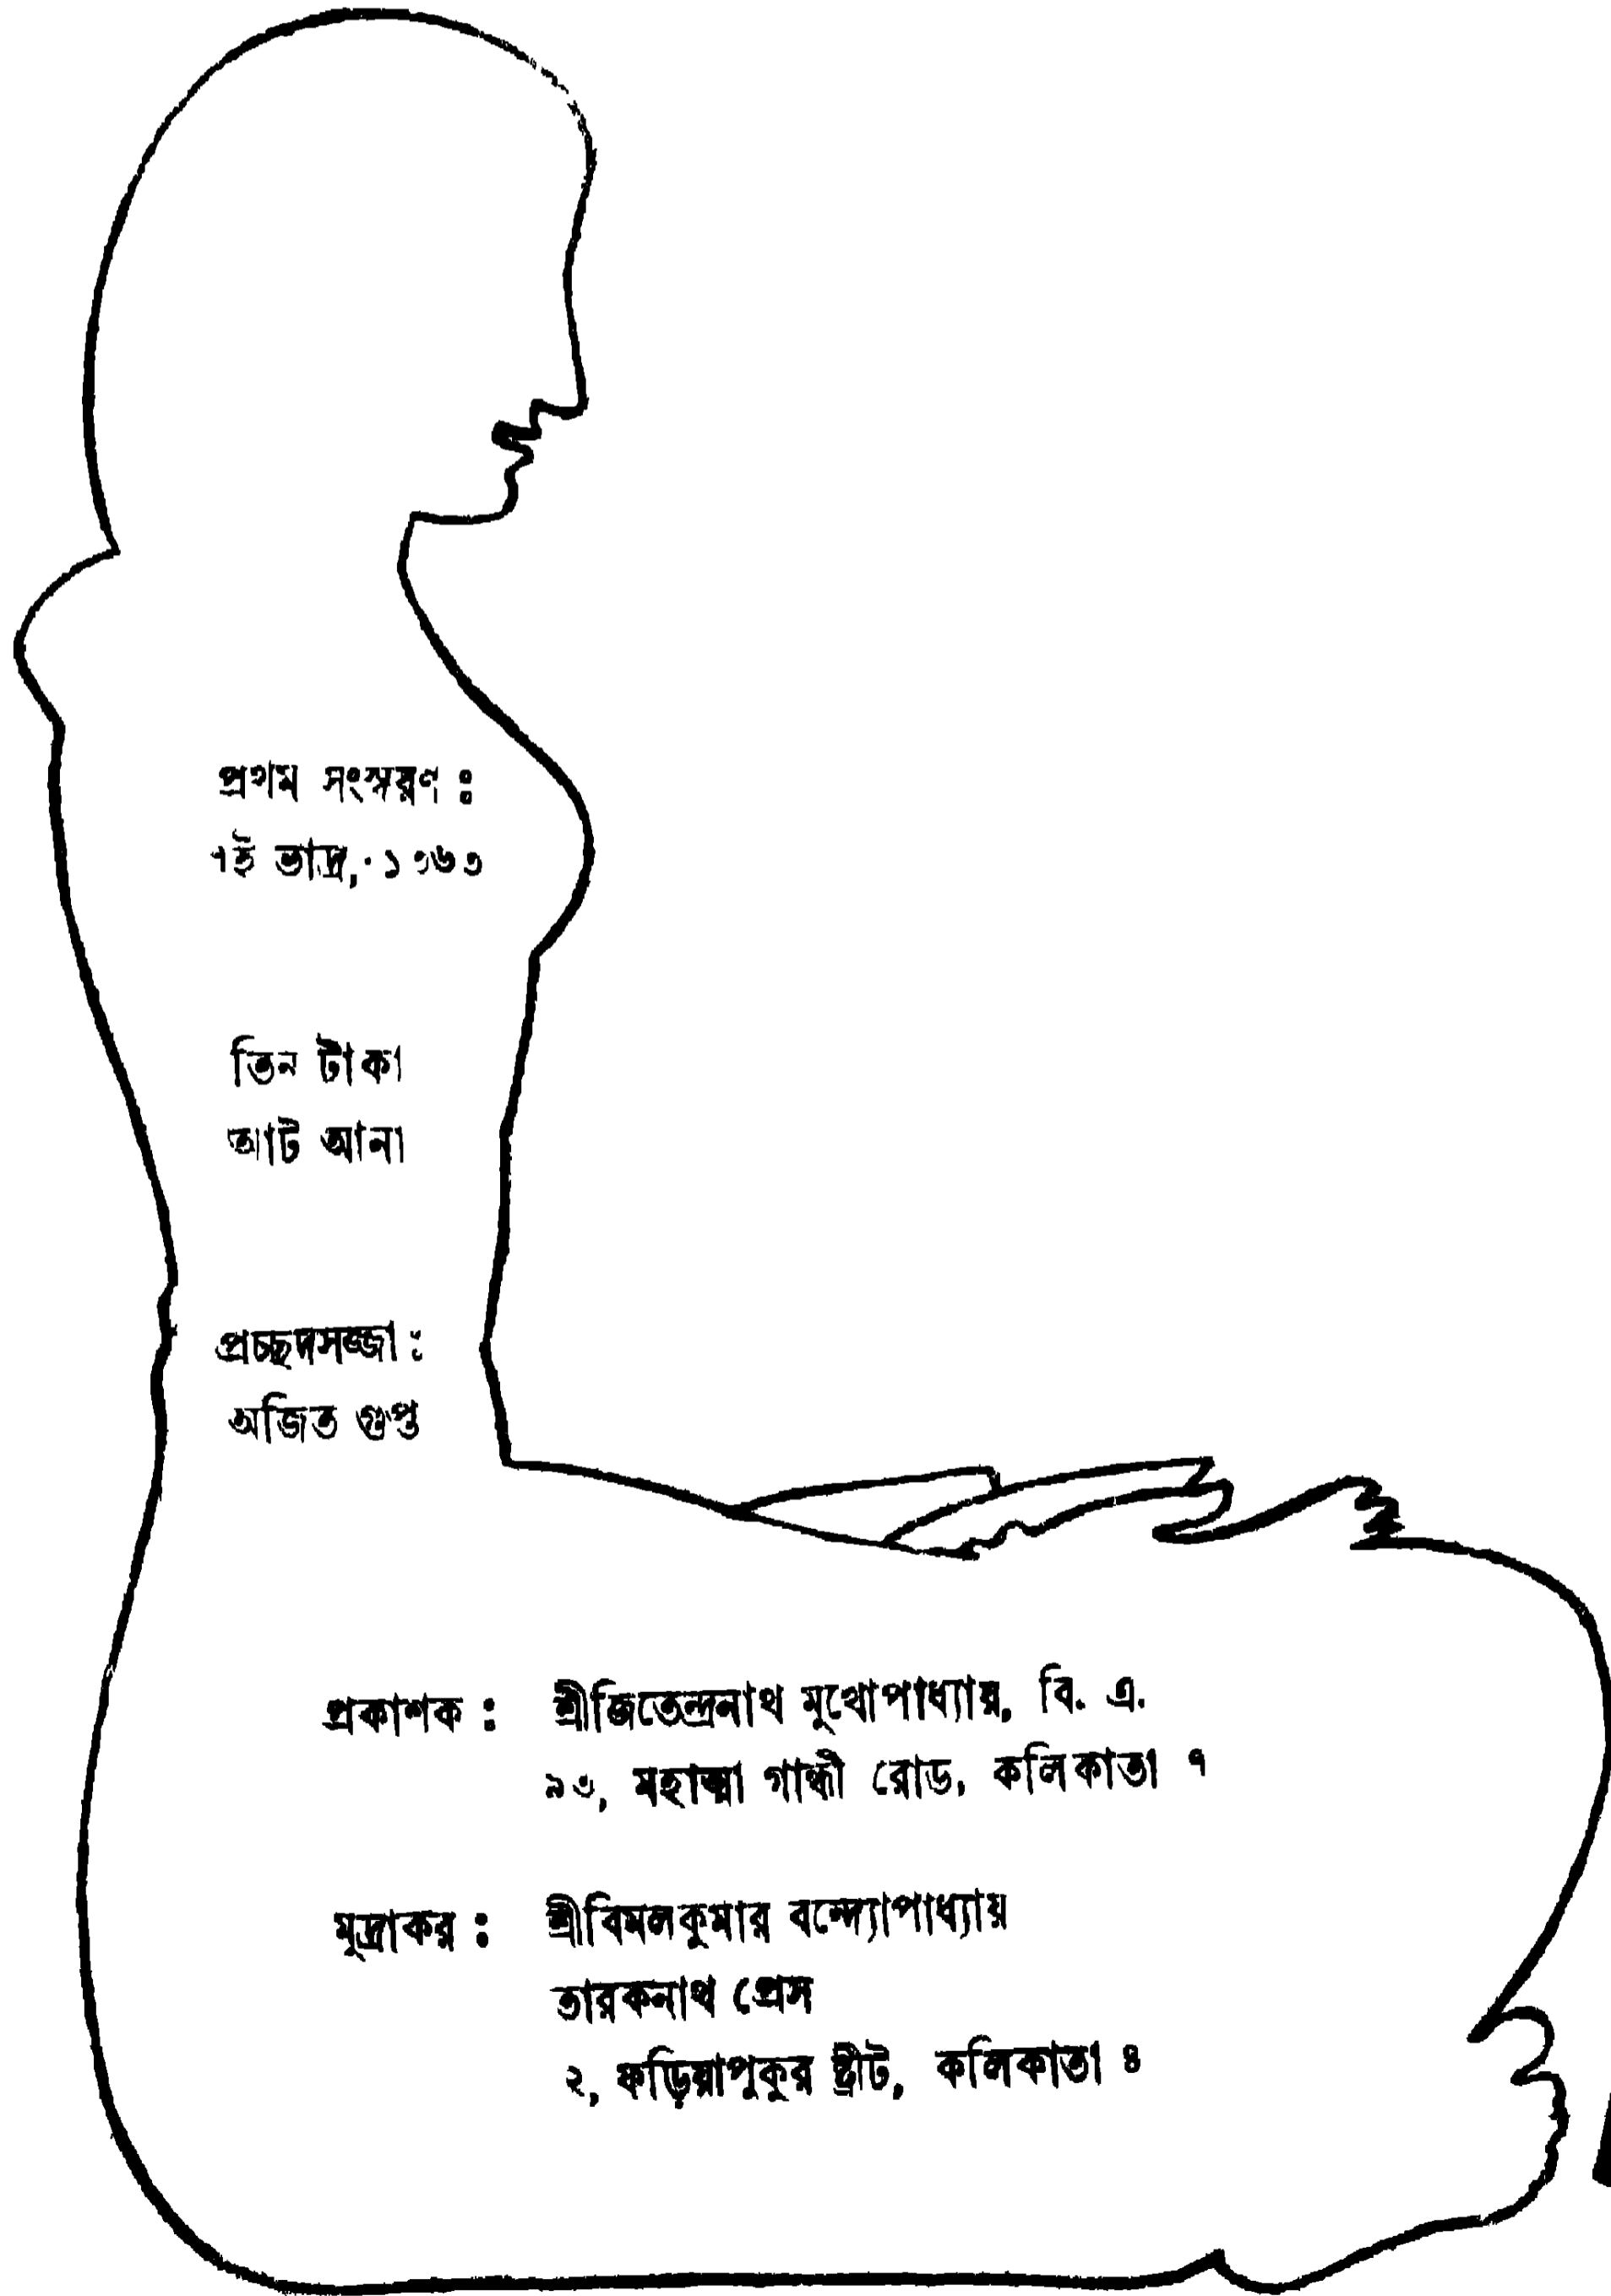 প্রথম সংস্করণ :
৭ই ভাদ্র, ১৩৬৩
তিন টাকা
আট আনা
প্রচ্ছদসজ্জা :
অজিত গুপ্ত
প্রকাশক : শ্রীজিতেন্দ্রনাথ মুখোপাধ্যায়, বি. এ.
৯৩, মহাত্মা গান্ধী রোড, কলিকাতা ৭
মুদ্রাকর : শ্রীবিমলকুমার বন্দ্যোপাধ্যায়
তারকনাথ প্রেস
২, ফড়িয়াপুকুর ষ্ট্রীট, কলিকাতা ৪